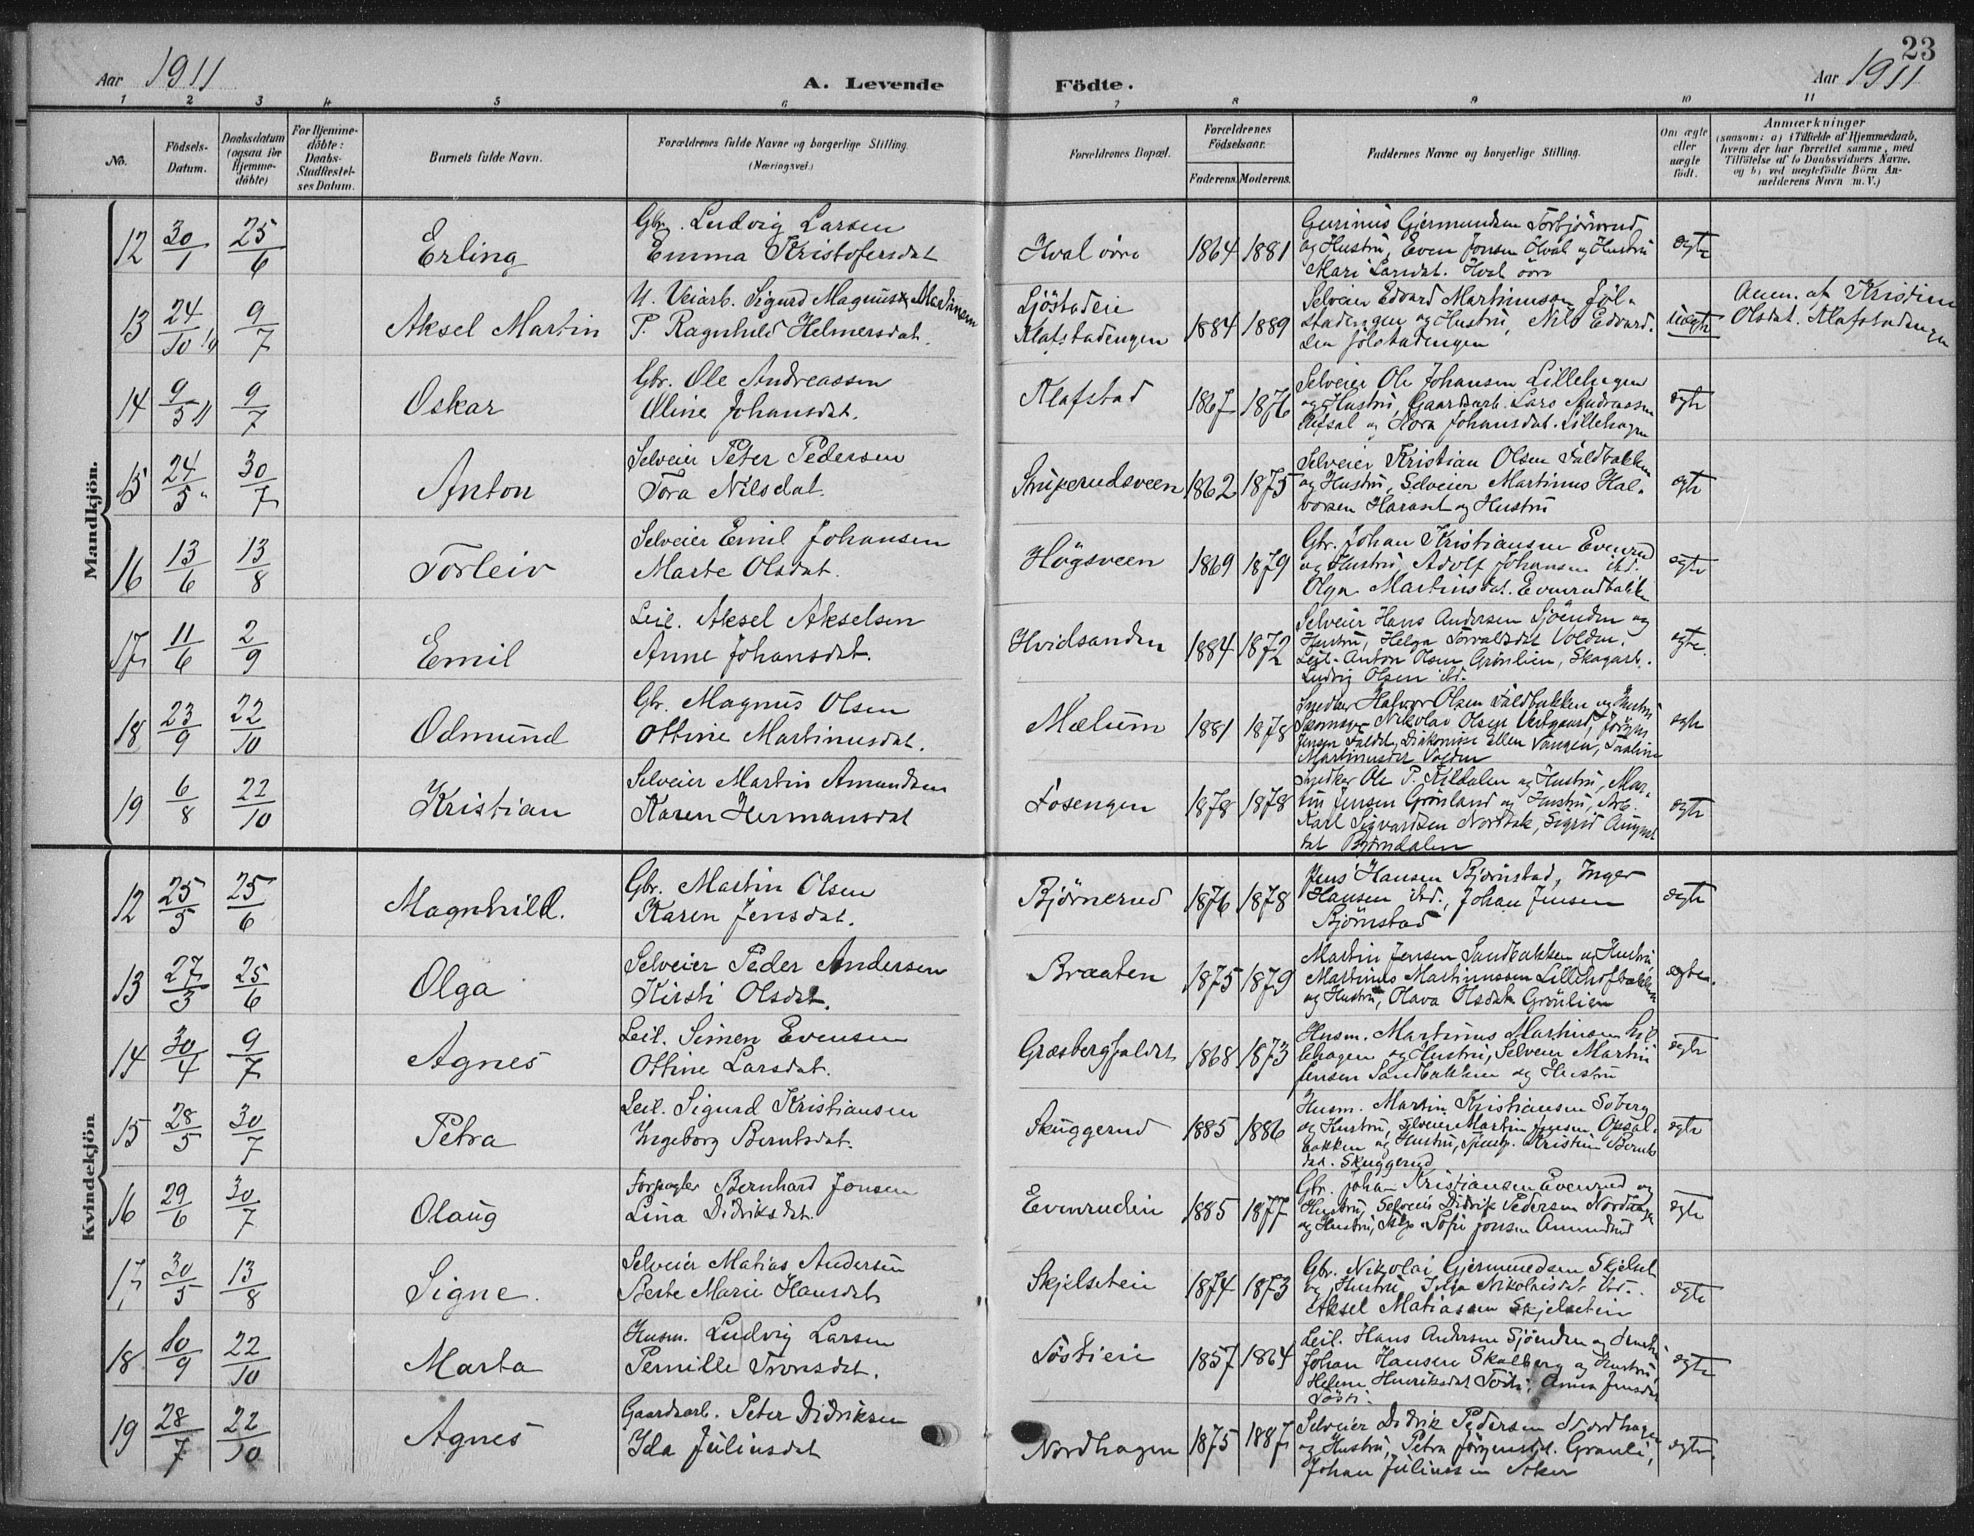 23
Aar 1911 A. Levende Födte. Aar 1911
1 2 3 4 5 6 7 8 9 10 11
No.
Födsels-Datum.
Daabsdatum (ogsaa for Hjemme-döbte)
For Hjemme-döbte: Daabs-Stadfæstel-ses Datum.
Barnets fulde Navn.
Forældrenes fulde Navne og borgerlige Stilling (Næringsvei.)
Forældrenes Bopæl.
Forældrenes Födselsaar.
Faderens. Moderens.
Faddernes Navne og borgerlige Stilling.
Om ægte eller uægte födt.
Anmærkninger
(saasom: a) i Tilfælde af Hjemmedaab,
hvem der har forrettet samme, med
Tilföielse af to Daabsvidners Navne.
og b) ved uægtefödte Börn An-
melderens Navn m. V.)
Mandkjön.
12 30/1 25/6 Erling
Gbr. Ludvig Larsen
Emma Kristofersdat
Hval övre 1864 1881
Gurinius Gjermundsen Torbjörnrud
og Hustru, Even Jonsen Hval og Hustru
Mari Larsdat. Hval övre
ægte
13 24/10 10 9/7 Aksel Martin
U. Veiarb. Sigurd Magnus Martinsen
P. Ragnhild Helmersdat.
Sjöstadeie
Klafstadengen 1884 1889
Selveier Edvard Martinussen Jöl-
stadengen og Hustru, Nils Edvard-
sen Jölstadengen
uægte
Anm. af Kristine
Olsdat. Klafstadengen
14 9/5 11 9/7 Oskar
Gbr. Ole Andreassen
Oline Johansdat.
Klafstad 1867 1876
Selveier Ole Johansen Lillehagen
og Hustru, Gaardsarb. Lars Andreassen
og Hora Johansdat. Lillehagen
ægte
15 24/5 30/7 Anton
Selveier Peter Pedersen
Tora Nilsdat.
Struperudsveen 1862 1875
Selveier Kristian Olsen Faldbakken
og Hustru, Selveier Martinus Hal-
vorsen Haraset og Hustru
ægte
16 13/6 13/8 Torleiv
Selveier Emil Johansen
Marte Olsdat.
Högsveen 1869 1879
Gbr. Johan Kristiansen Evenrud
og Hustru, Adolf Johansen ibd.
Olga Martinsdat. Evenrudbakken
ægte
17 11/6 2/9 Emil
Leil. Aksel Akselsen
Anne Johansdat.
Hvidsanden 1884 1872
Selveier Hans Andersen Sjöenden og
Hustru, Helga Torvaldsdat Volden.
Leil. Anton Olsen Grönlien, Skogarb.
Ludvig Olsen ibd.
ægte.
18 23/9 22/10 Odmund
Gbr. Magnus Olsen
Ottine Martinusdat.
Mælum 1881 1878
Snedker Halvor Olsen Faldbakken og Hustru
Nikolai Olsen Vestgaard, Jörgen
Jensen Faldet, Diakonisse Ellen Vangen,
Martinusdat Volden
ægte
19 6/8 22/10 Kristian
Selveier Martin Amundsen
Karen Hermansdat
Fosengen 1878 1878
Snedker Ole P. Kildalen og Hustru, Mar-
tin Jensen Grönland og Hustru, Arb.
Karl Sigvardsen Nordbak, Sigrid August
dat Björndalen
ægte
Kvindekjön
12 25/5 25/6 Magnhild.
Gbr. Martin Olsen
Karen Jensdat.
Björnerud 1876 1878
Jens Hansen Björnstad, Inger
Hansen ibd., Johan Jensen
Björnstad
ægte
13 27/3 25/6 Olga
Selveier Peder Andersen
Kirsti Olsdat.
Braaten 1875 1879
Martin Jensen Sandbakken og Hustru
Martinus Martinussen Lillehofbakken
og Hustru, Olava Olsdat Grönlien
ægte.
14 30/4 9/7 Agnes
Leil. Simen Evensen
Ottine Larsdat.
Græsbergfaldet 1868 1873
Husm. Martinus Martinsen Lil-
lehagen og Hustru, Selveier Martin
Jensen Sandbakken og Hustru
ægte
15 28/5 30/7 Petra
Leil. Sigurd Kristiansen
Ingeborg Berntsdat.
Skuggerud 1885 1886
Husm. Martin Kristiansen Soberg
og Hustru, Selveier Martin Jensen Opsal-
bakken og Hustru, Kristine Bernts
dat. Skuggerud
ægte
16 29/6 30/7 Olaug
Forpagter Bernhard Jonsen
Lina Didriksdat.
Evenrudeie 1885 1877
Gbr. Johan Kristiansen Evenrud og
Hustru, Selveier Didrik Pedersen Nordhagen
og Hustru, Sofie Jonsen Amundrud
ægte
17 30/5 13/8 Signe.
Selveier Matias Andersen
Berte Marie Hansdat
Skjelseteie 1874 1873
Gbr. Nikolai Gjermundsen Skjelset
og Hustru, Inga Nikolaisdat ibd.
Aksel Matiassen Skjelseteie
ægte
18 10/9 22/10 Marta
Husm. Ludvig Larsen
Pernille Tronsdat.
Töstieie 1857 1864
Leil. Hans Andersen Sjöenden og Hustru
Johan Hansen Skalberg og Hustru,
Helene Henriksdat Tösti, Anna Jensdat
Tösti.
ægte
19 28/7 22/10 Agnes
Gaardsarb. Peter Didriksen
Ida Juliusdat
Nordhagen 1875 1887
Selveier Didrik Pedersen Nordhagen
og Hustru, Petra Jörgensdat. Granli,
Johan Juliussen Aker
ægte